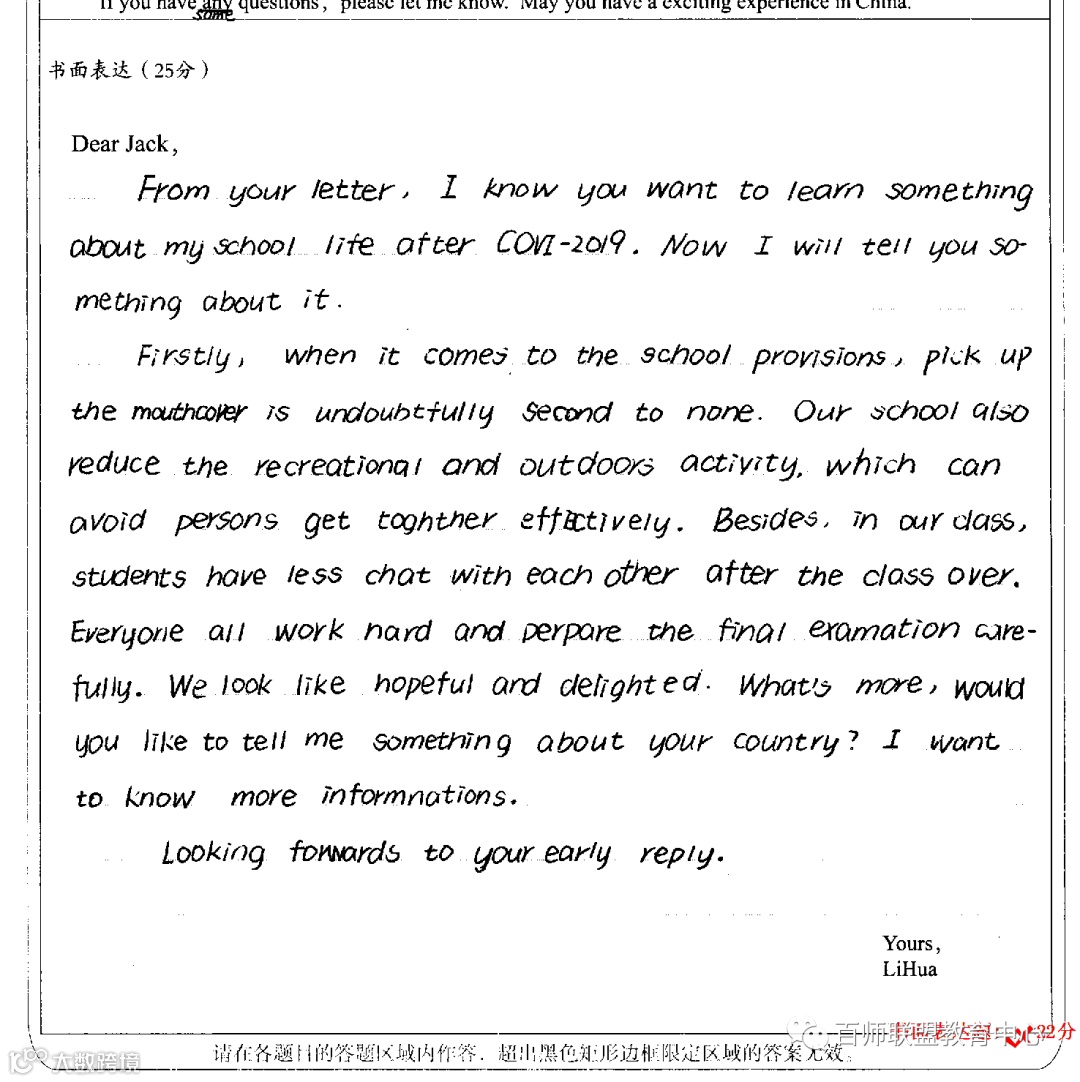 If you have any questions, please let me know. May you have a exciting experience in China.
some
书面表达（25分）
Dear Jack,
From your letter, I know you want to learn something
about my school life after COVI-2019. Now I will tell you so-
mething about it.
Firstly, when it comes to the school provisions, pick up
the mouthcover is undoubtfully second to none. Our school also
reduce the recreational and outdoors activity, which can
avoid persons get toghther effectively. Besides, in our class,
students have less chat with each other after the class over.
Everyone all work hard and perpare the final examation care-
fully. We look like hopeful and delighted. What's more, would
you like to tell me something about your country? I want
to know more informnations.
Looking forwards to your early reply.
Yours,
LiHua
百师联盟教育中心
22分
请在各题目的答题区域内作答，超出黑色矩形边框限定区域的答案无效。
大数跨境